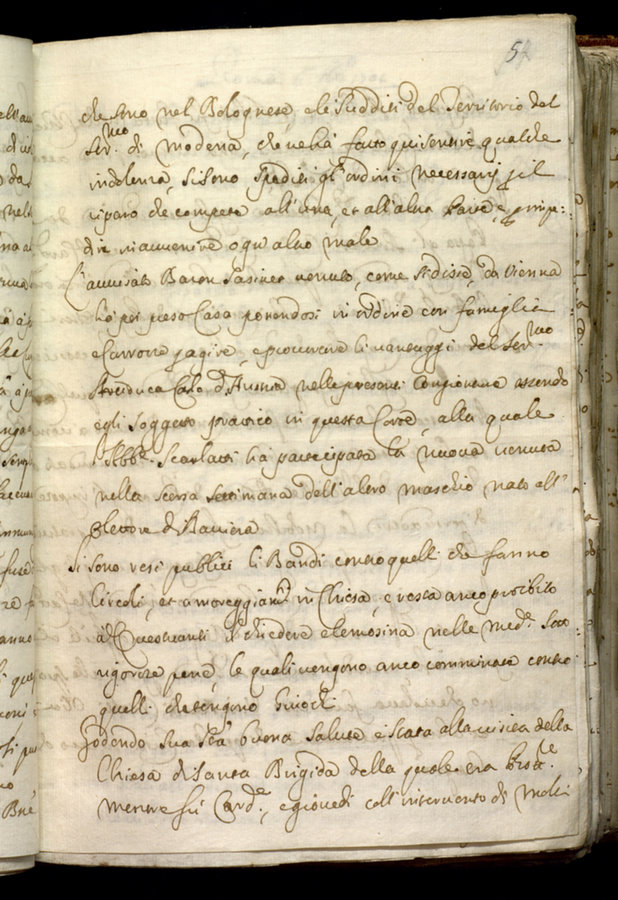 che sono nel Bolognese, e le Sudditi del Territorio del
Ser.mo di Modena, che ne hà fatto qui sentire qualche
indolenza, si sono spediti gl'ordini necessarij p il
riparo che compete all'una, et all'altra Parte, e p impe-
dire in avvenire ogn'altro male
L'avvisato Baron Sassinet venuto, come si disse, da Vienna
hà poi preso Casa ponendosi in ordine con famiglia
e Carrozze p agire, e procurare li vantaggi del Ser.mo
Arciduca Carlo d'Austria nelle presenti Congionture essendo
egli soggetto prattico in questa Corte, alla quale
l'Abb.e Scarlatti hà partecipata la nuova venuta
nella scorsa settimana dell'altro maschio nato all'
Elettore di Baviera
Si sono resi publici li Bandi contro quelli che fanno
Circoli, et amoreggiam.ti in Chiesa, e resta anco proibito
à Questuanti il chiedere elemosina nelle med.e sotto
rigorose pene, le quali vengono anco comminate contro
quelli che tengono
Godendo Sua S.tà buona salute è stata alla visita della
Chiesa di Santa Brigida della quale era Prott.re
mentre fù Card.e, e giovedi coll'intervento di molti